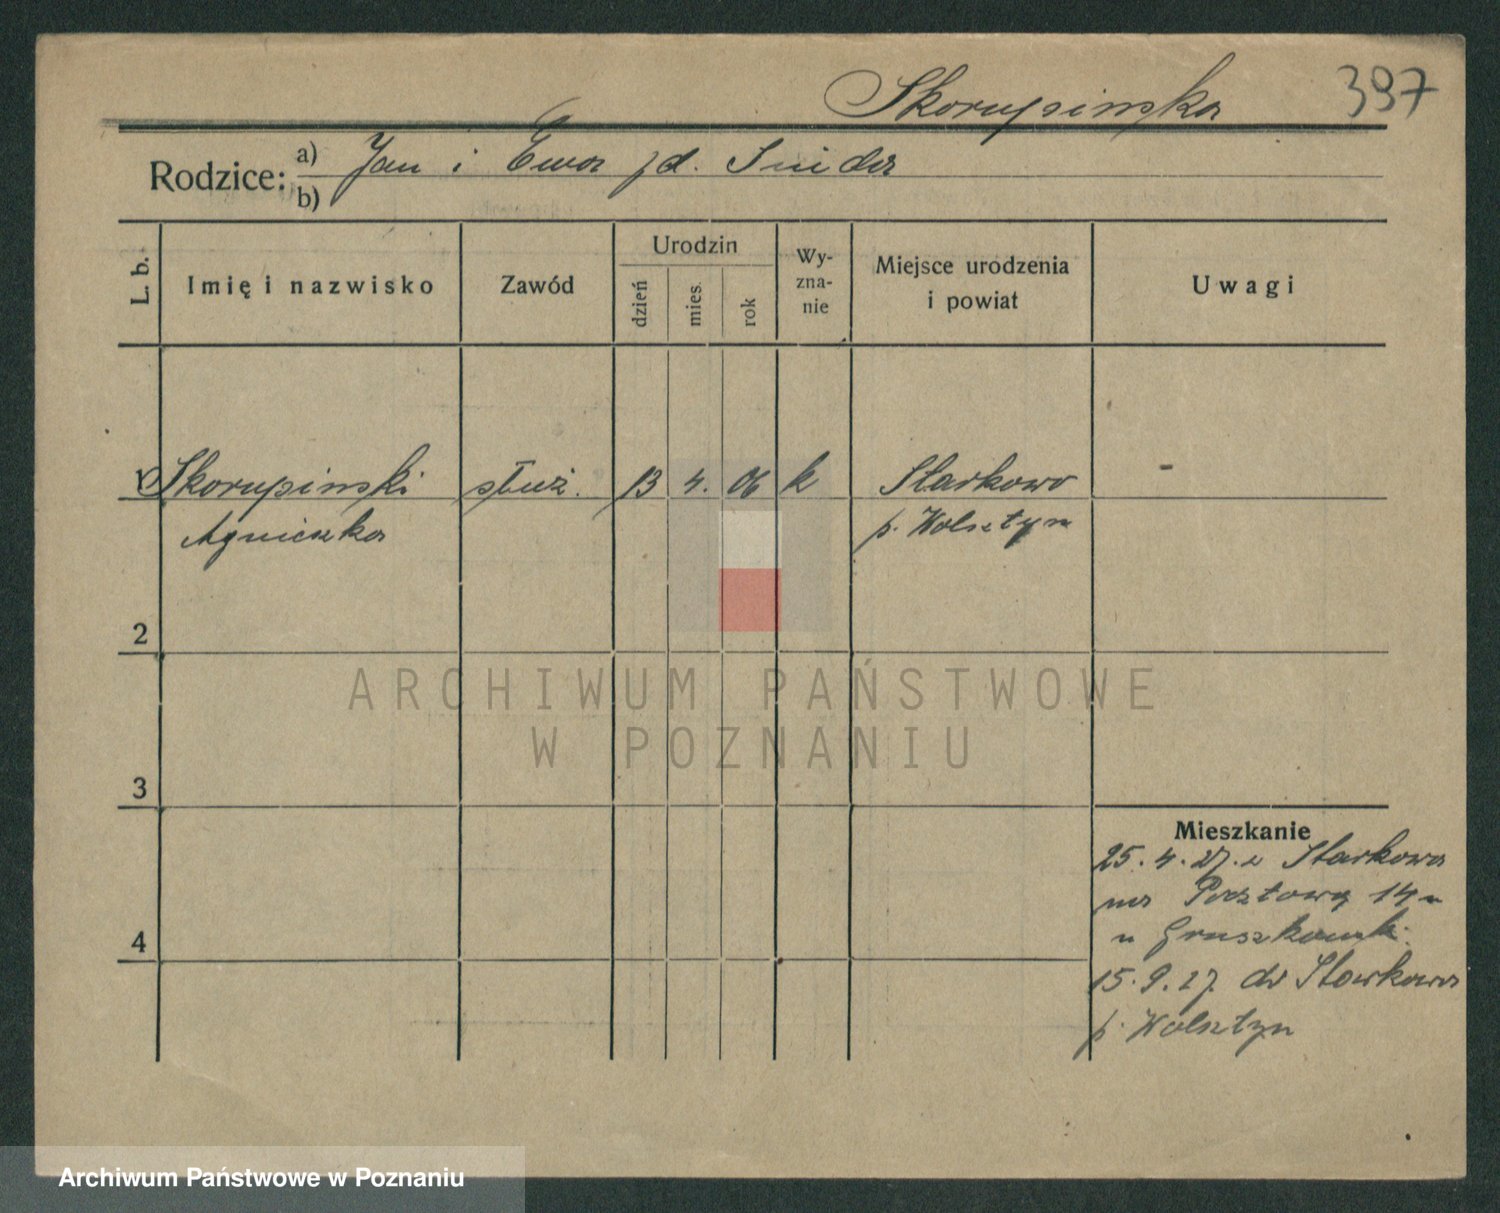 Skorupińska 397
Rodzice: a) Jan i Ewa zd. Snider
b)
L. b.
Imię i nazwisko
Zawód
Urodzin
dzień
mies.
rok
Wy-
zna-
nie
Miejsce urodzenia
i powiat
Uwagi
1 Skorupinski służ. 13 4. 06 k Starkowo -
Agnieszka p. Wolsztyn
2
ARCHIWUM PAŃSTWOWE
W POZNANIU
3
Mieszkanie
25. 4. 27. z Starkowa
na Pocztową 14
u
4
15. 9. 27. do Starkowa
p. Wolsztyn
Archiwum Państwowe w Poznaniu